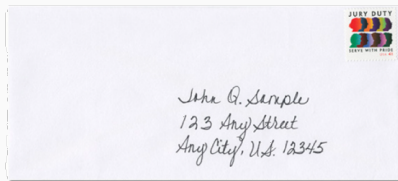 JURY DUTY
SERVE WITH PRIDE
John Q. Sample
123 Any Street
Any City, U.S. 12345